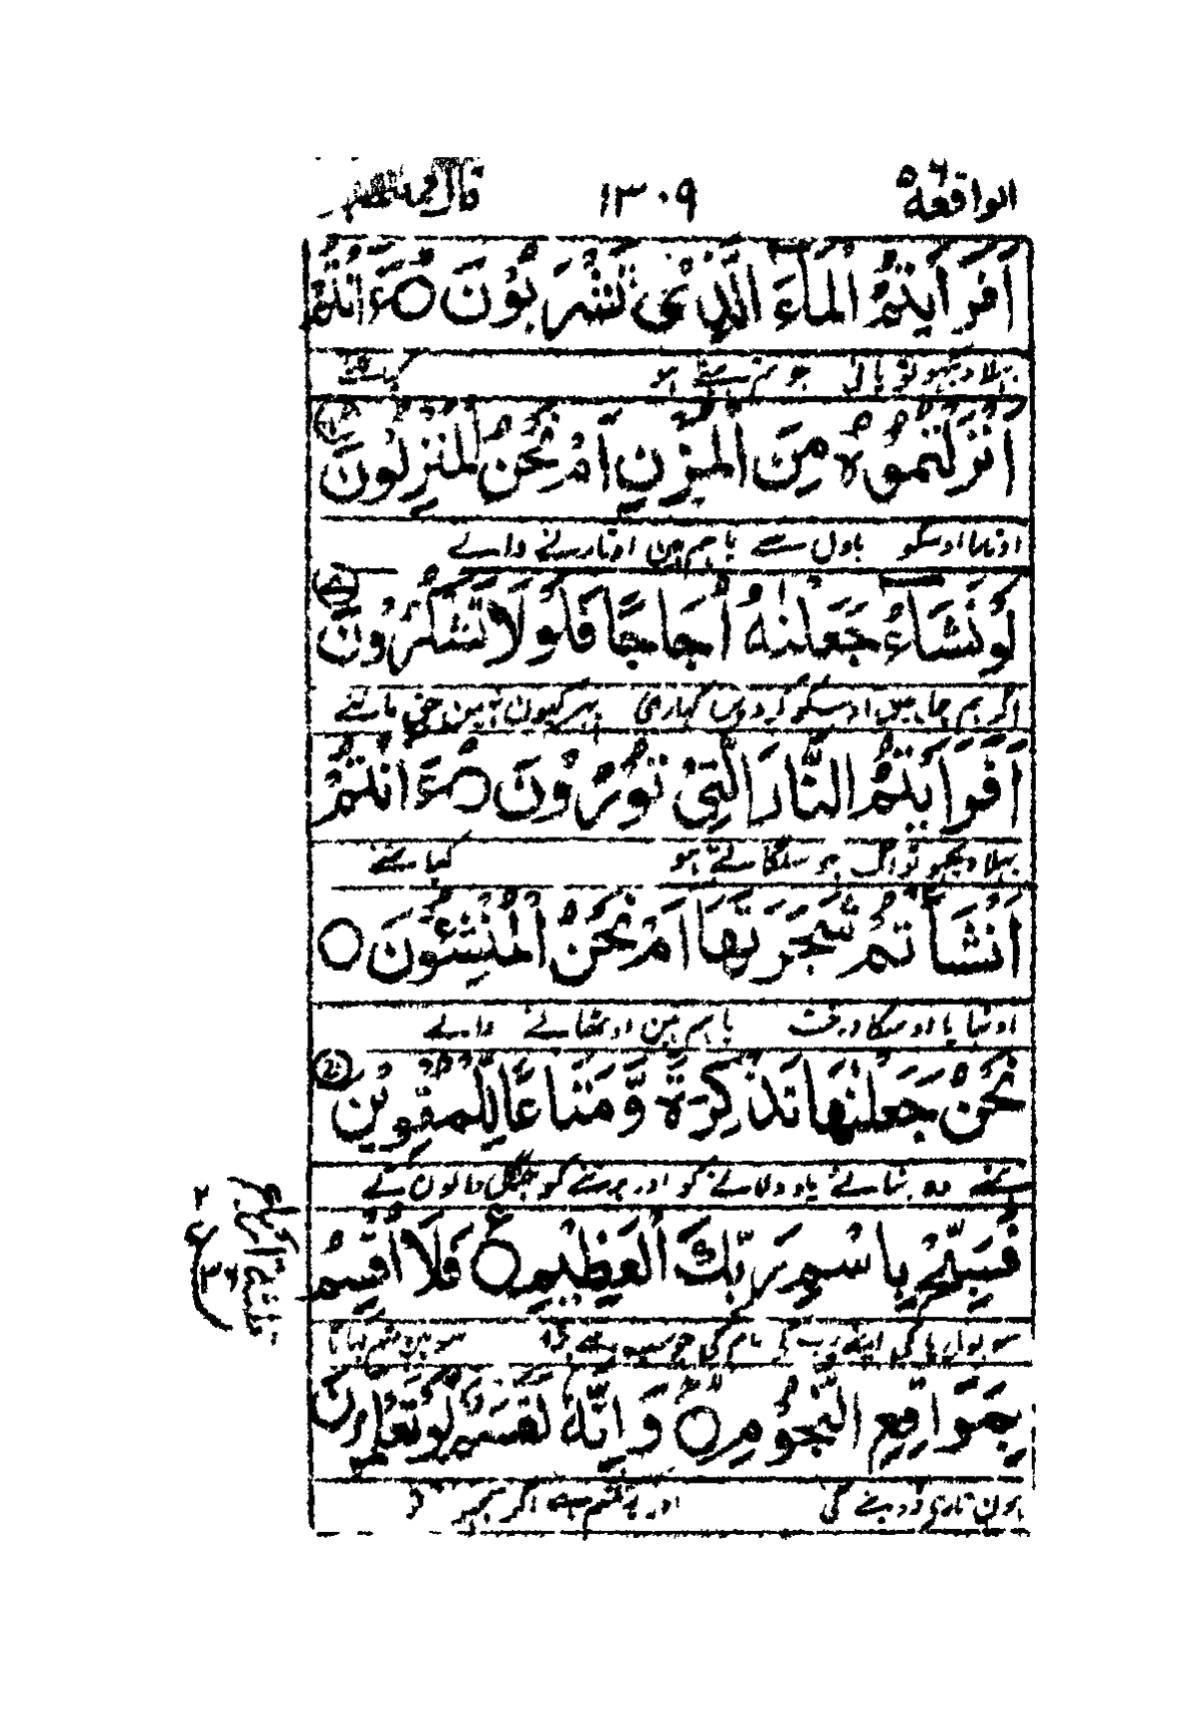 الواقعة ٥٦ ١٣٠٩ قال فما خطبكم
اَفَرَاَیْتُمُ الْمَآءَ الَّذِیْ تَشْرَبُوْنَ ○ ءَاَنْتُمْ
بہلا دیکہو تو پانی جو تم پیتے ہو کیا تمنے
اَنْزَلْتُمُوْهُ مِنَ الْمُزْنِ اَمْ نَحْنُ الْمُنْزِلُوْنَ
اوتارا اوسکو بادل سے یا ہم ہین اوتارنے والے
لَوْ نَشَآءُ جَعَلْنٰهُ اُجَاجًا فَلَوْلَا تَشْكُرُوْنَ
اگر ہم چاہین اوسکو کردین کہاری پہر کیون نہین حق مانتے
اَفَرَاَیْتُمُ النَّارَ الَّتِیْ تُوْرُوْنَ ○ ءَاَنْتُمْ
بہلا دیکہو تو آگ جو سلگاتے ہو کیا تمنے
اَنْشَاْتُمْ شَجَرَتَهَا اَمْ نَحْنُ الْمُنْشِـُٔوْنَ ○
اوٹہایا اوسکا درخت یا ہم ہین اوٹہانے والے
نَحْنُ جَعَلْنٰهَا تَذْكِرَةً وَّ مَتَاعًا لِّلْمُقْوِیْنَ
ہمنے وہ بنائے یاد دلانے کو اور برتنے کو جنگل والون کے
فَسَبِّحْ بِاسْمِ رَبِّكَ الْعَظِیْمِ ○ فَلَاۤ اُقْسِمُ
سو بول پاکی اپنے رب کی نام کی جو سب سے بڑا سو مین قسم کہاتا
بِمَوَاقِعِ النُّجُوْمِ ○ وَ اِنَّهٗ لَقَسَمٌ لَّوْ تَعْلَمُوْنَ
ہون تاری ڈوبنے کی اور یہ قسم ہے اگر سمجہو تو